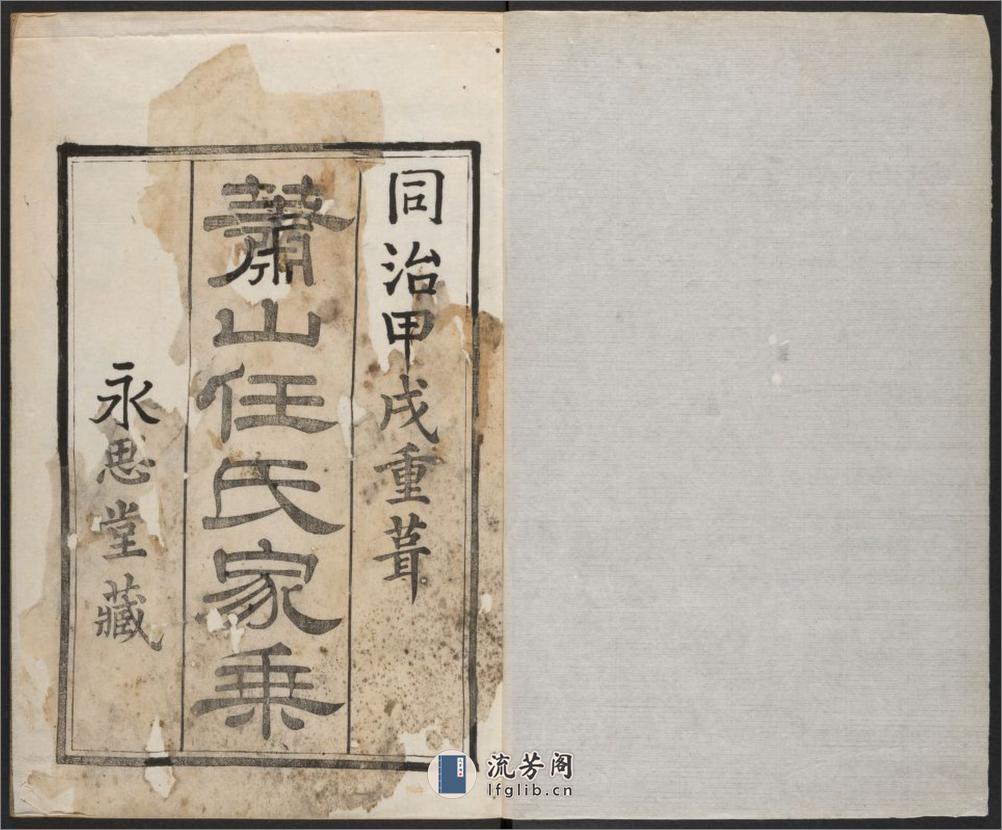 同治甲戌重葺
蕭山任氏家乘
永思堂藏
流芳阁
lfglib.cn